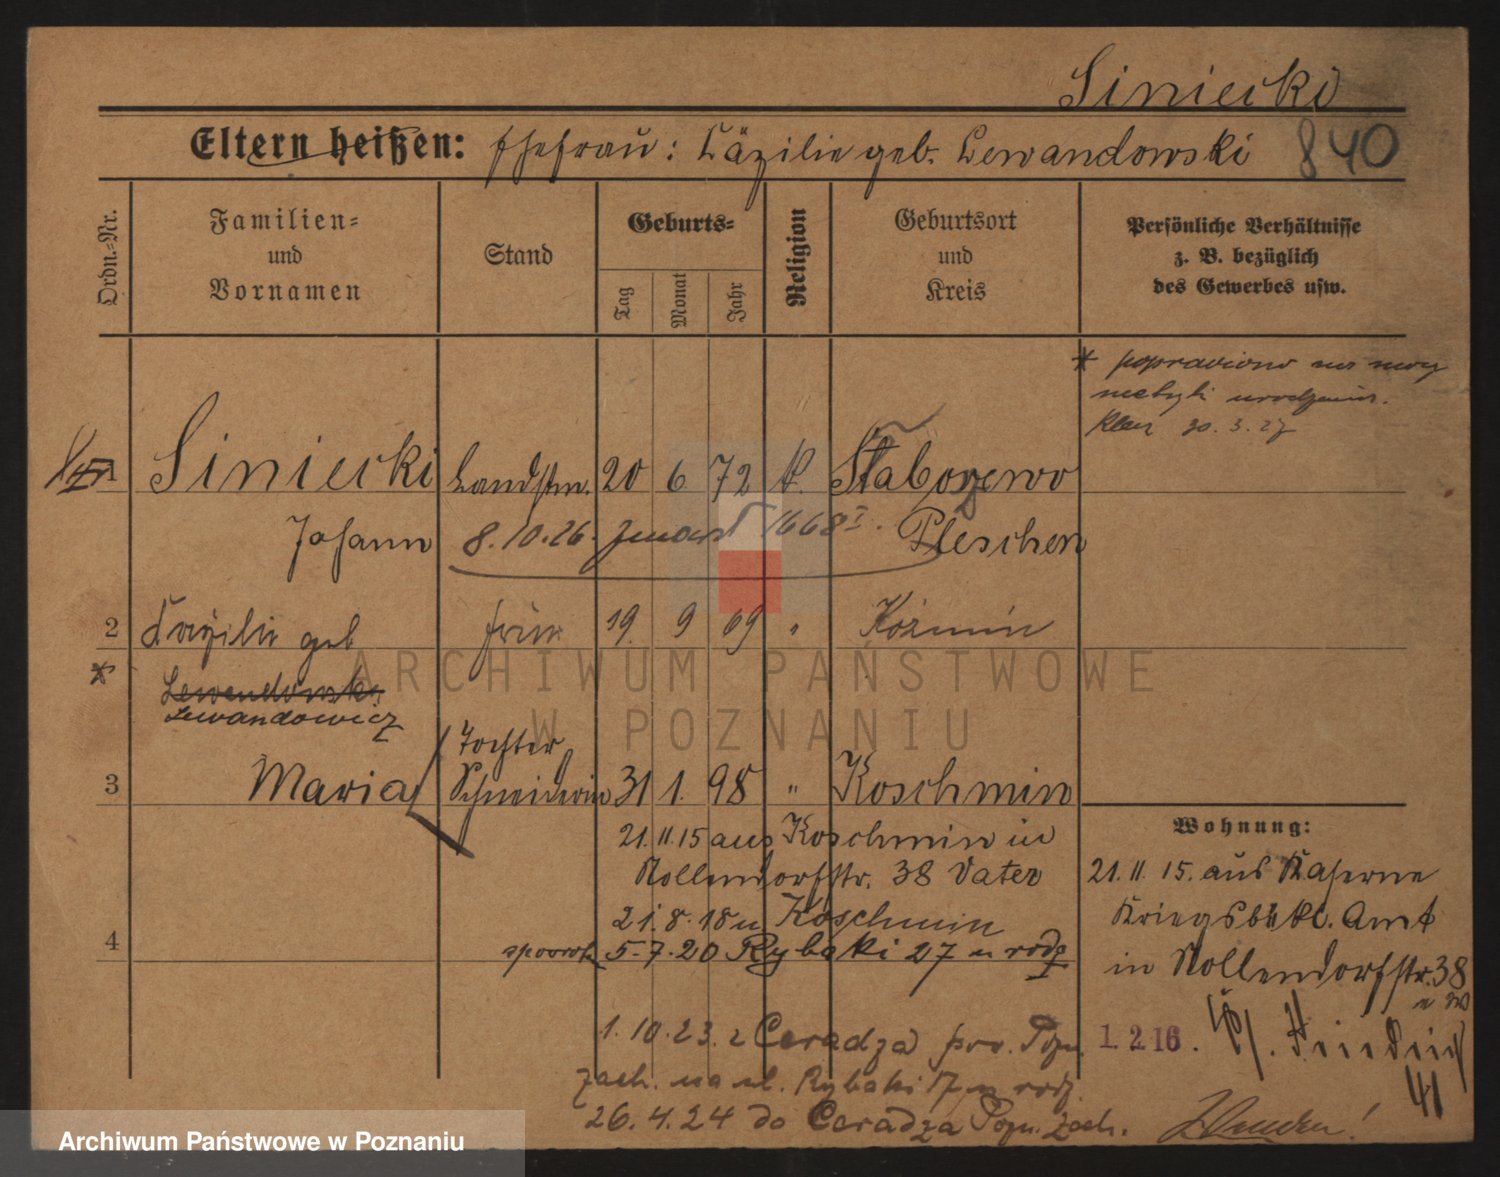 Siniecki
Eltern heißen: Ehefrau: Cäzilie geb. Lewandowski 840
Ordn.-Nr.
Familien-
und
Vornamen
Stand
Geburts-
Tag
Monat
Jahr
Religion
Geburtsort
und
Kreis
Persönliche Verhältnisse
z. B. bezüglich
des Gewerbes usw.
* poprawiono na mocy
metryki urodzenia.
30. 3. 27
1 Siniecki Landstm. 20 6 72 k.
Johann 8.10.26. zmarł 1668 I. Pleschen
2 Cäzilie geb Frau 19. 9 69 " Koźmin
* Lewandowski
Lewandowicz
3 Maria Tochter
Schneiderin 31 1. 98 " Koschmin
21. 11. 15 aus Koschmin in
Nollendorfstr. 38 Vater
21. 8. 18 n Koschmin
4 5. 7. 20 Rybaki 27 u rodz
1. 10. 23. z Ceradza pow. Pozn.
zach. na ul. Rybaki 17 u rodz.
26. 4. 24 do Ceradza Pozn. zach.
Wohnung:
21. 11. 15. aus Kaserne
Kriegsbekl. Amt
in Nollendorfstr. 38
1. 2. 16.
41
ARCHIWUM PAŃSTWOWE
W POZNANIU
Archiwum Państwowe w Poznaniu